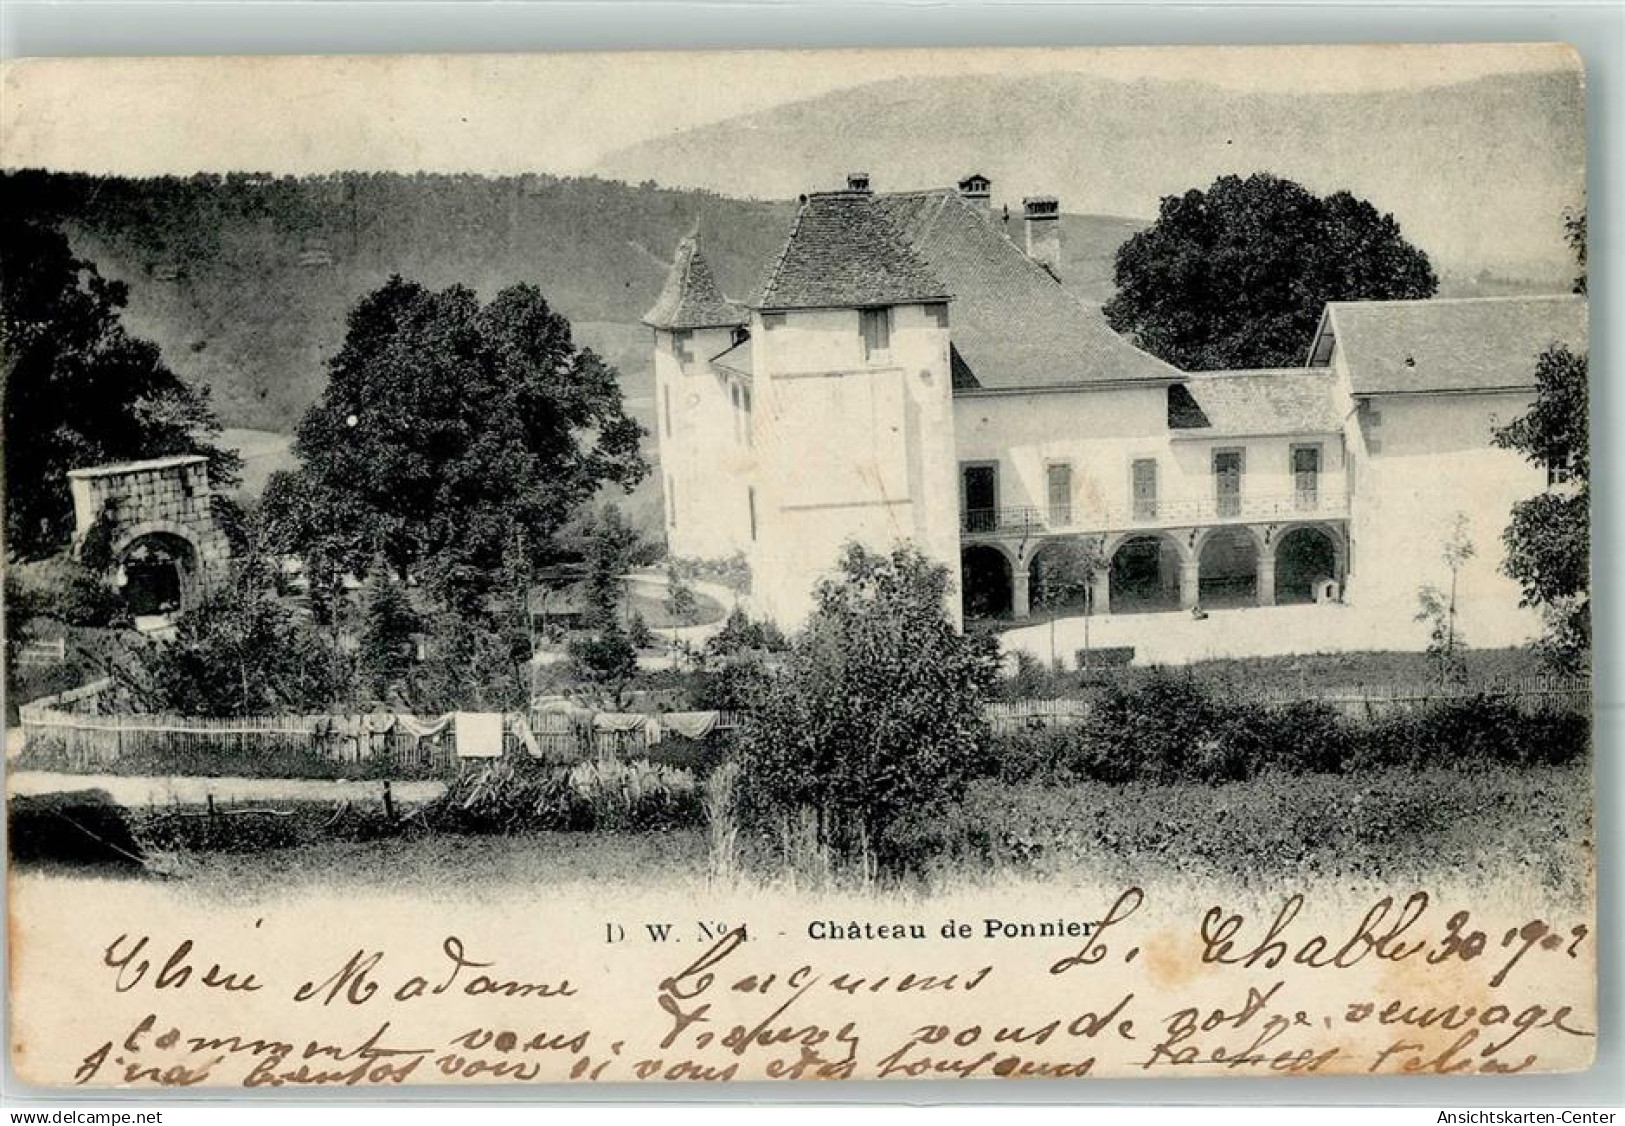 D. W. No 1. - Château de Ponnier
L. Chable 30 1902
Chère Madame
comment vous trouvez vous de votre veuvage
J'irai bientot voir si vous etes toujours
www.delcampe.net
Ansichtskarten-Center